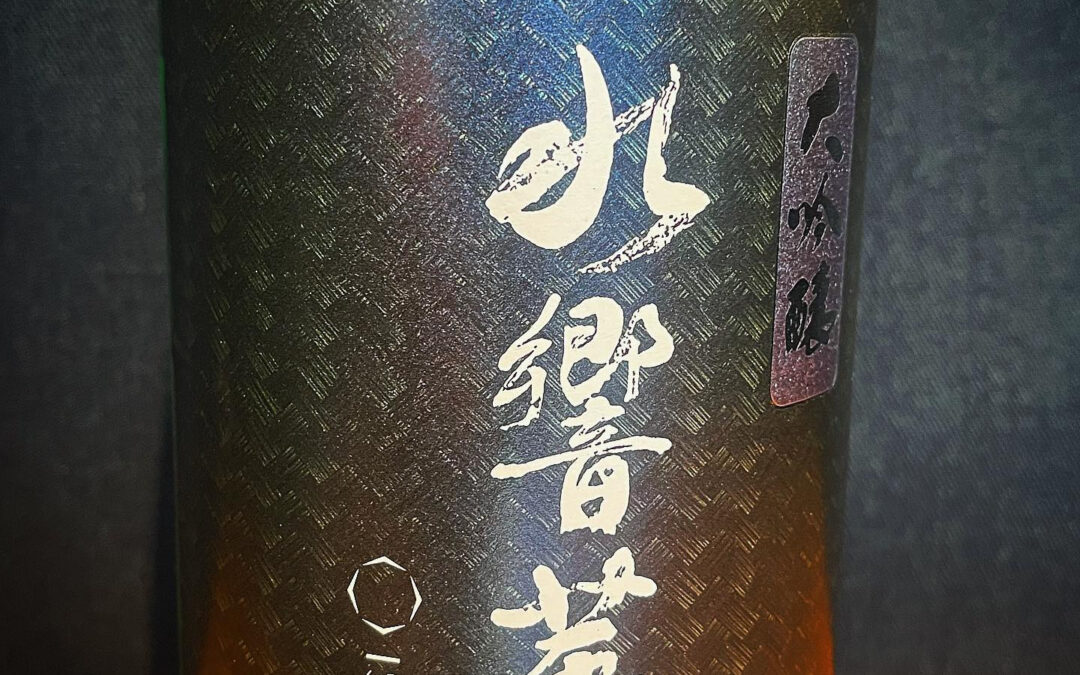 大吟醸
水響